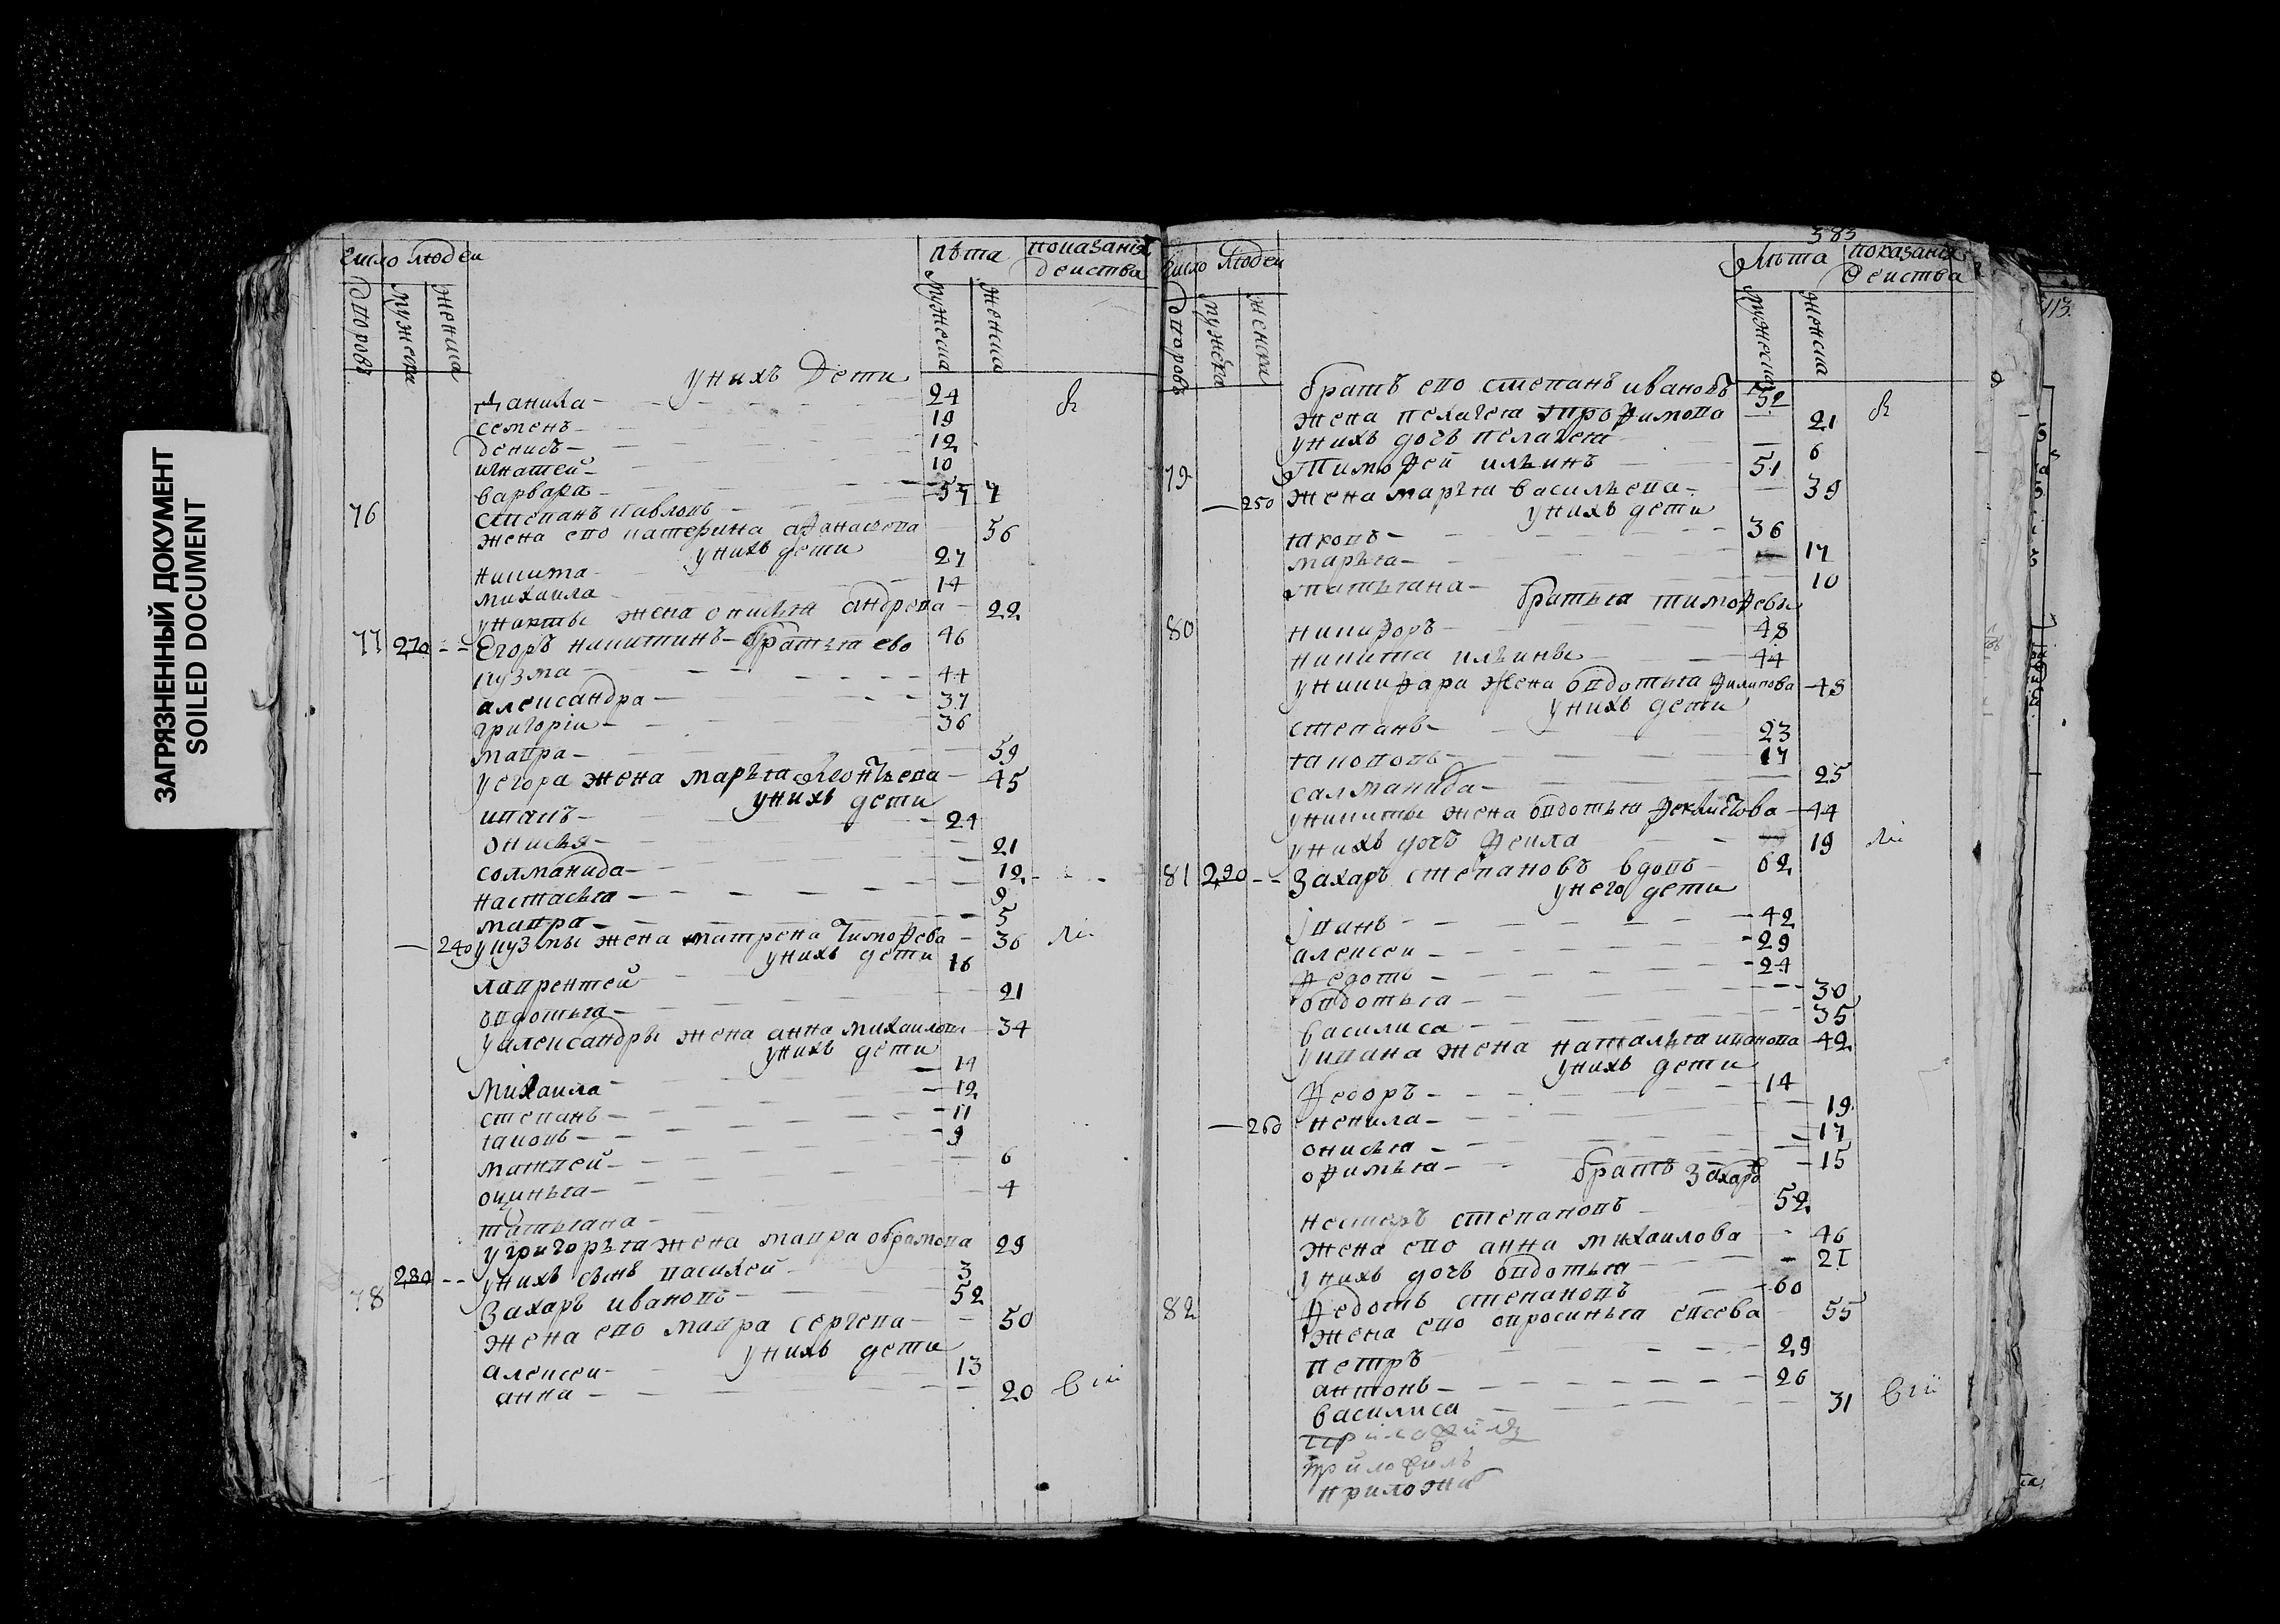 ЗАГРЯЗНЕННЫЙ ДОКУМЕНТ
SOILED DOCUMENT
число людей лѣта показанія
действа
дворовъ мужеска женска мужеска женска
у нихъ дети
данила 24
семенъ 19
денисъ 12
игнатей 10
варвара 7
76 степанъ павловъ 57
жена ево катерина афанасева 56
у нихъ дети
никита 27
михаила 14
у никиты жена онисья андрева 22
77 270 Егоръ никитинъ братья ево 46
кузма 44
александра 37
григоріи 36
мавра 59
у егора жена марья леонтьева 45
у нихъ дети
иванъ 24
онисья 21
солманида 12
настасья 9
мавра 5
240 у кузмы жена матрена тимофева 36
у нихъ дети
лаврентей 16
овдотья 21
у александры жена анна михаилова 34
у нихъ дети
михаила 14
степанъ 12
яковъ 11
матвей 9
6
татьяна 4
у григорья жена мавра обрамова 29
280 у нихъ сынъ василей 3
78 Захаръ ивановъ 52
жена ево мавра сергева 50
у нихъ дети
алексеи 13
анна 20
383
число людей лѣта показанія
действа
дворовъ мужеска женска мужеска женска
братъ ево степанъ ивановъ 52
жена пелагея трофимова 21
у нихъ дочь пелагея 6
79 Тимофей ильинъ 51
250 жена марья васильева 39
у нихъ дети
яковъ 36
марья 17
татьяна 10
братья тимофевы
80 никифоръ 48
никита ильины 44
у никифара жена овдотья филипова 48
у нихъ дети
степанъ 23
17
салманида 25
у никиты жена овдотья феклистова 44
у нихъ дочь фекла 19
81 290 Захаръ степановъ вдовъ 62
у него дети
іванъ 42
алексеи 29
федотъ 24
овдотья 30
василиса 35
у ивана жена наталья иванова 42
у нихъ дети
федоръ 14
260 ненила 19
онисья 17
офимья 15
братъ Захаръ
нестеръ степановъ 52
жена ево анна михаилова 46
у нихъ дочь овдотья 21
82 федотъ степановъ 60
жена ево опросинья евсева 55
петръ 29
антонъ 26
василиса 31
приложи